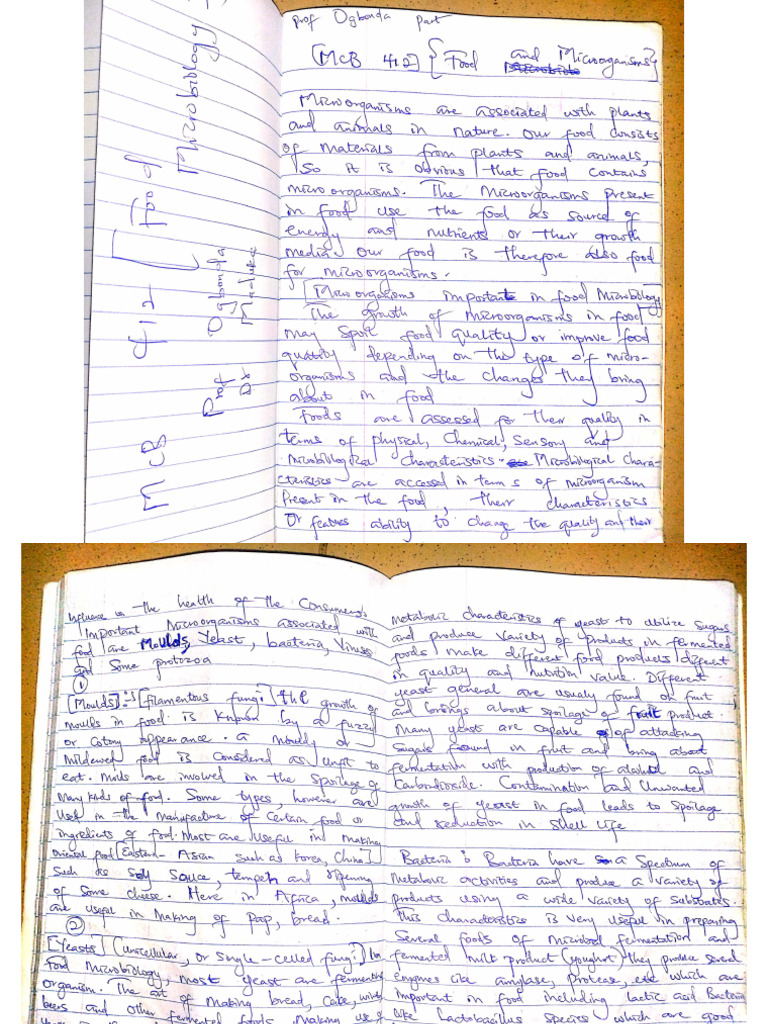 MCB 412 [Food Microbiology
Prof Ogbonda
Dr Maduka
Prof Ogbonda part
[MCB 412] {Food and Microorganisms}
Microorganisms are associated with plants
and animals in nature. Our food consists
of materials from plants and animals,
so it is obvious that food contains
microorganisms. The Microorganisms present
in food use the food as source of
energy and nutrients or their growth
media. Our food is therefore also food
for microorganisms.
[Microorganisms important in food Microbiology
The growth of microorganisms in food
may spoil food quality or improve food
quality depending on the type of micro-
organisms and the changes they bring
about in food
Foods are assessed for their quality in
terms of physical, Chemical, Sensory and
microbiological characteristics. Microbiological Chara-
cteristics are accessed in terms of microorganism
Present in the food, their characteristics
or features ability to change the quality and their
influence on the health of the Consumers.
Important Microorganisms associated with
food are Moulds, Yeast, bacteria, Viruses
and Some protozoa
①
[Moulds] :- [filamentous fungi] the growth of
moulds in food is known by a fuzzy
or Cotony appearance. a mouldy or
Mildewed food is Considered as unfit to
eat. Molds are involved in the spoilage of
Many kinds of food. Some types, however are
used in the manufacture of certain food or
ingredients of food. Most are useful in making
oriental food [Eastern - Asian such as Korea, China]
Such as soy sauce, tempeh and ripening
of Some cheese. Here in Africa, moulds
are useful in making of Pap, bread.
②
[Yeasts] (unicellular, or single-celled fungi) In
Food Microbiology, most yeast are fermenting
organism. The art of making bread, cake, wines
beers and other fermented foods, Making use of
Metabolic characteristics of yeast to utilize sugars
and produce variety of products in fermented
foods make different food products different
in quality and nutrition value. Different
yeast general are usually found on fruit
and brings about spoilage of fruit product.
Many yeast are capable of attacking
sugars found in fruit and bring about
fermentation with production of alcohol and
Carbondioxide. Contamination and Unwanted
growth of yeast in food leads to Spoilage
and reduction in Shelf life
Bacteria : Bacteria have a Spectrum of
metabolic activities and produce a variety of
products using a wide variety of substrates.
This characteristics is very useful in preparing
Several foods of microbial fermentation and
fermented milk product (youghurt) they produce Several
enzymes like amylase, protease, etc which are
important in food including lactic acid Bacteria
like Lactobacillus species which are good